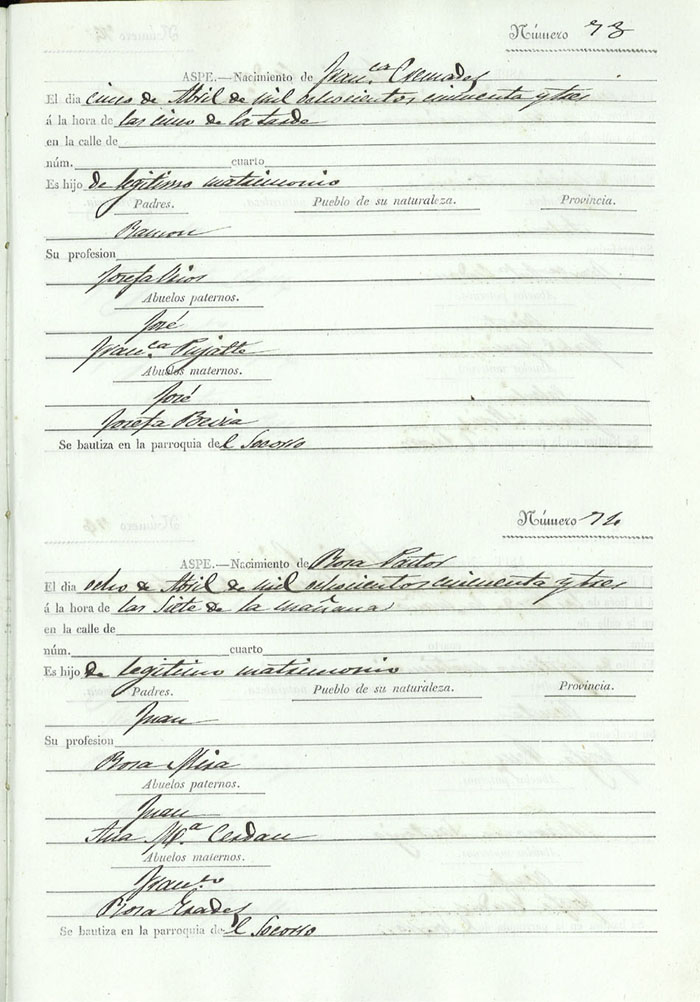 Número 73
ASPE.—Nacimiento de Fran.ca Cremades
El dia cinco de Abril de mil ochocientos cincuenta y tres
á la hora de las cinco de la tarde
en la calle de
núm. cuarto
Es hijo de legitimo matrimonio
Padres. Pueblo de su naturaleza. Provincia.
Ramon
Su profesion
Josefa
Abuelos paternos.
José
Fran.ca Pujalte
Abuelos maternos.
José
Josefa
Se bautiza en la parroquia del Socorro
Número 74
ASPE.—Nacimiento de Rosa Pastor
El dia ocho de Abril de mil ochocientos cincuenta y tres
á la hora de las siete de la mañana
en la calle de
núm. cuarto
Es hijo de legitimo matrimonio
Padres. Pueblo de su naturaleza. Provincia.
Juan
Su profesion
Rosa Mira
Abuelos paternos.
Juan
Ana M.a Cerdan
Abuelos maternos.
Fran.co
Rosa
Se bautiza en la parroquia del Socorro